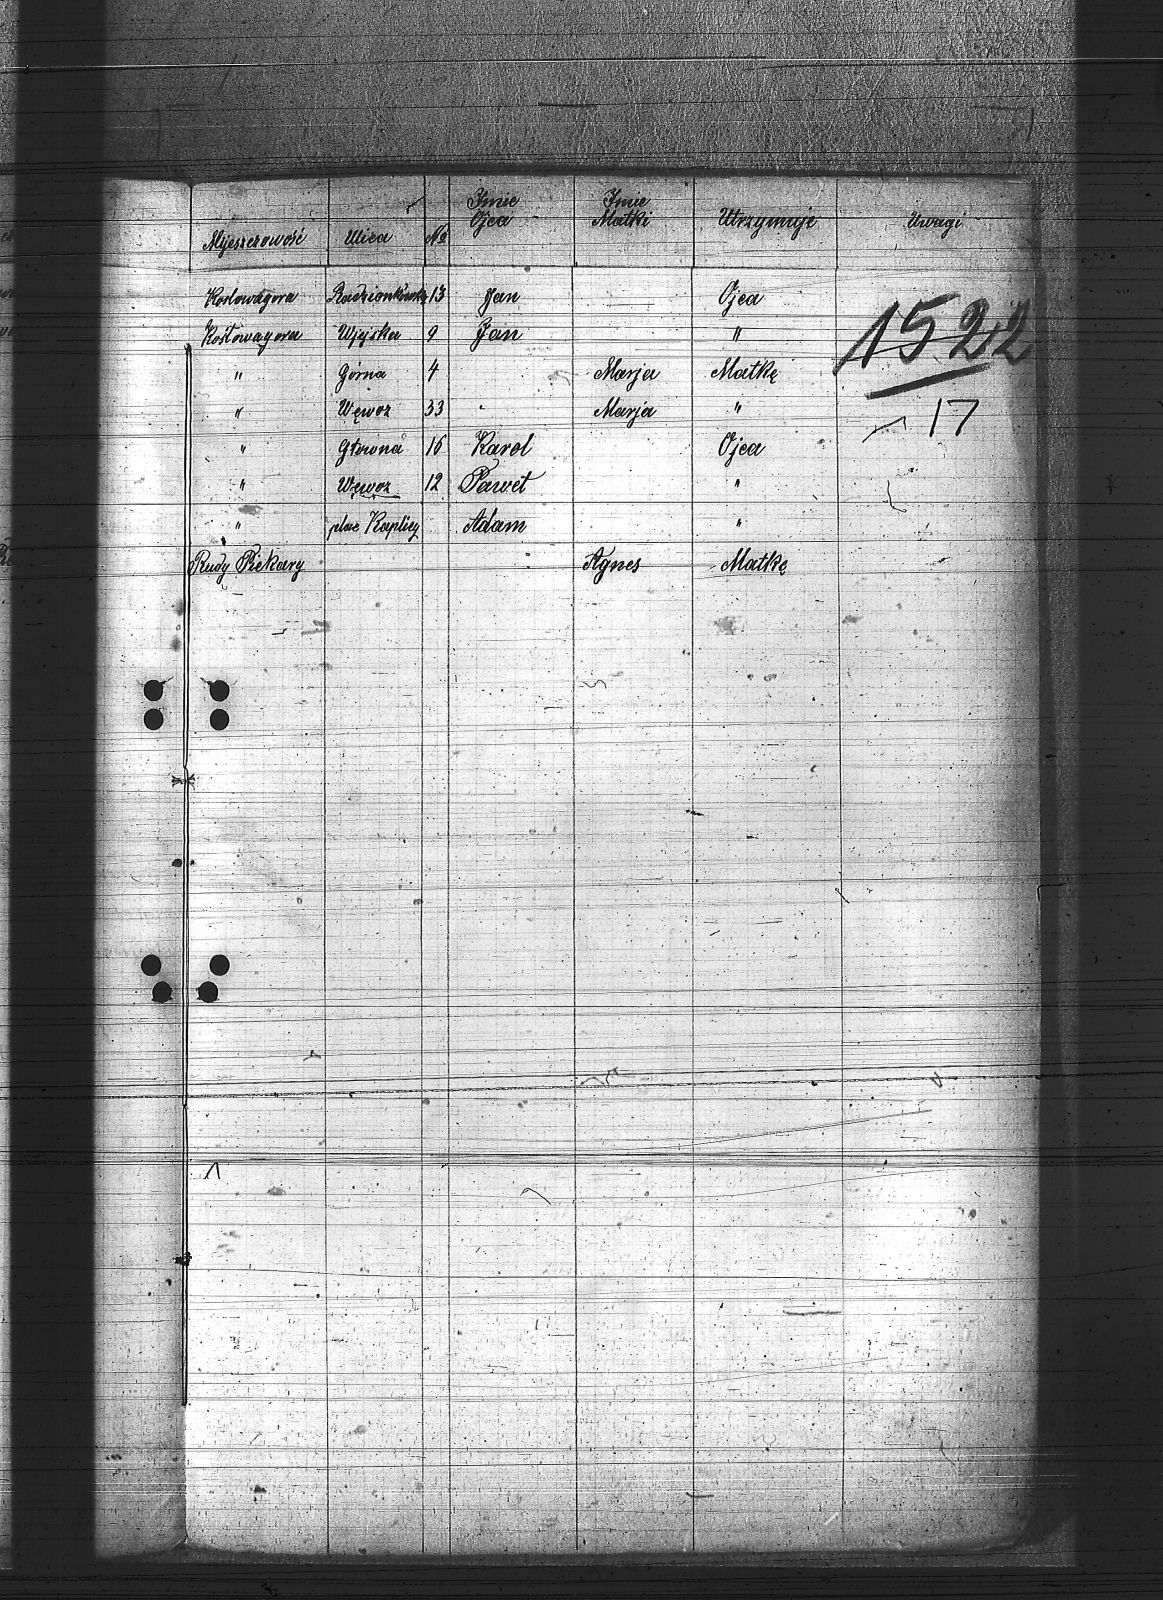 Mijescowość Ulica № Imie Ojca Imie Matki Utrzymuje Uwagi
Kozlowagora Radzionkówska 13 Jan — Ojca
Kozłowagora Wjejska 9 Jan " 1522
" Górna 4 Marja Matkę
" Węwoz 33 Marja " 17
" Głowna 16 Karol Ojca
" Węwoz 12 Paweł "
" plac Kaplicy Adam "
Rudy Piekary Agnes Matkę